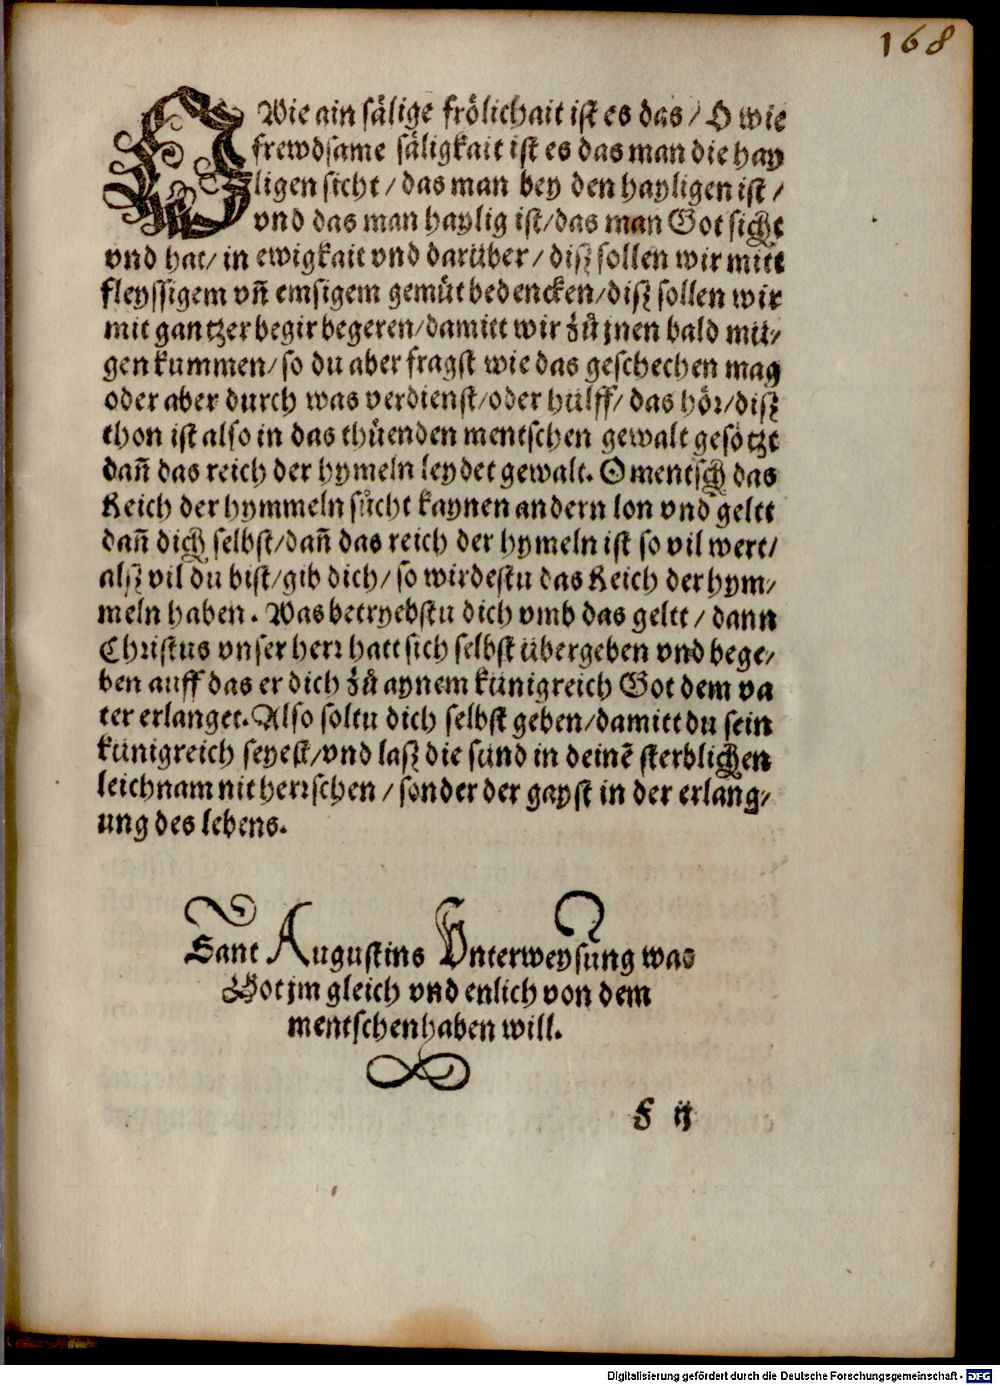 168
O Wie ain sälige frölichait ist es das / O wie
frewdsame säligkait ist es das man die hay
ligen sicht / das man bey den hayligen ist /
vnd das man haylig ist / das man Got sicht
vnd hat / in ewigkait vnd darüber / disz sollen wir mitt
fleyssigem vñ emsigem gemüt bedencken / disz sollen wir
mit gantzer begir begeren / damitt wir zů jnen bald mü⸗
gen kummen / so du aber fragst wie das geschechen mag
oder aber durch was verdienst / oder hülff / das hör / disz
thon ist also in das thüenden mentschen gewalt gesötzt
dañ das reich der hymeln leydet gewalt. O mentsch das
Reich der hymmeln sůcht kaynen andern lon vnd geltt
dañ dich selbst / dañ das reich der hymeln ist so vil wert /
alsz vil du bist / gib dich / so wirdestu das Reich der hym⸗
meln haben. Was betryebstu dich vmb das geltt / dann
Christus vnser herr hatt sich selbst übergeben vnd bege⸗
ben auff das er dich zů aynem künigreich Got dem va
ter erlanget. Also soltu dich selbst geben / damitt du sein
künigreich seyest / vnd lasz die sünd in deinē sterblichen
leichnam nit herrschen / sonder der gayst in der erlang⸗
ung des lebens.
Sant Augustins Vnterweysung was
Got jm gleich vnd enlich von dem
mentschen haben will.
F ij
Digitalisierung gefördert durch die Deutsche Forschungsgemeinschaft - DFG